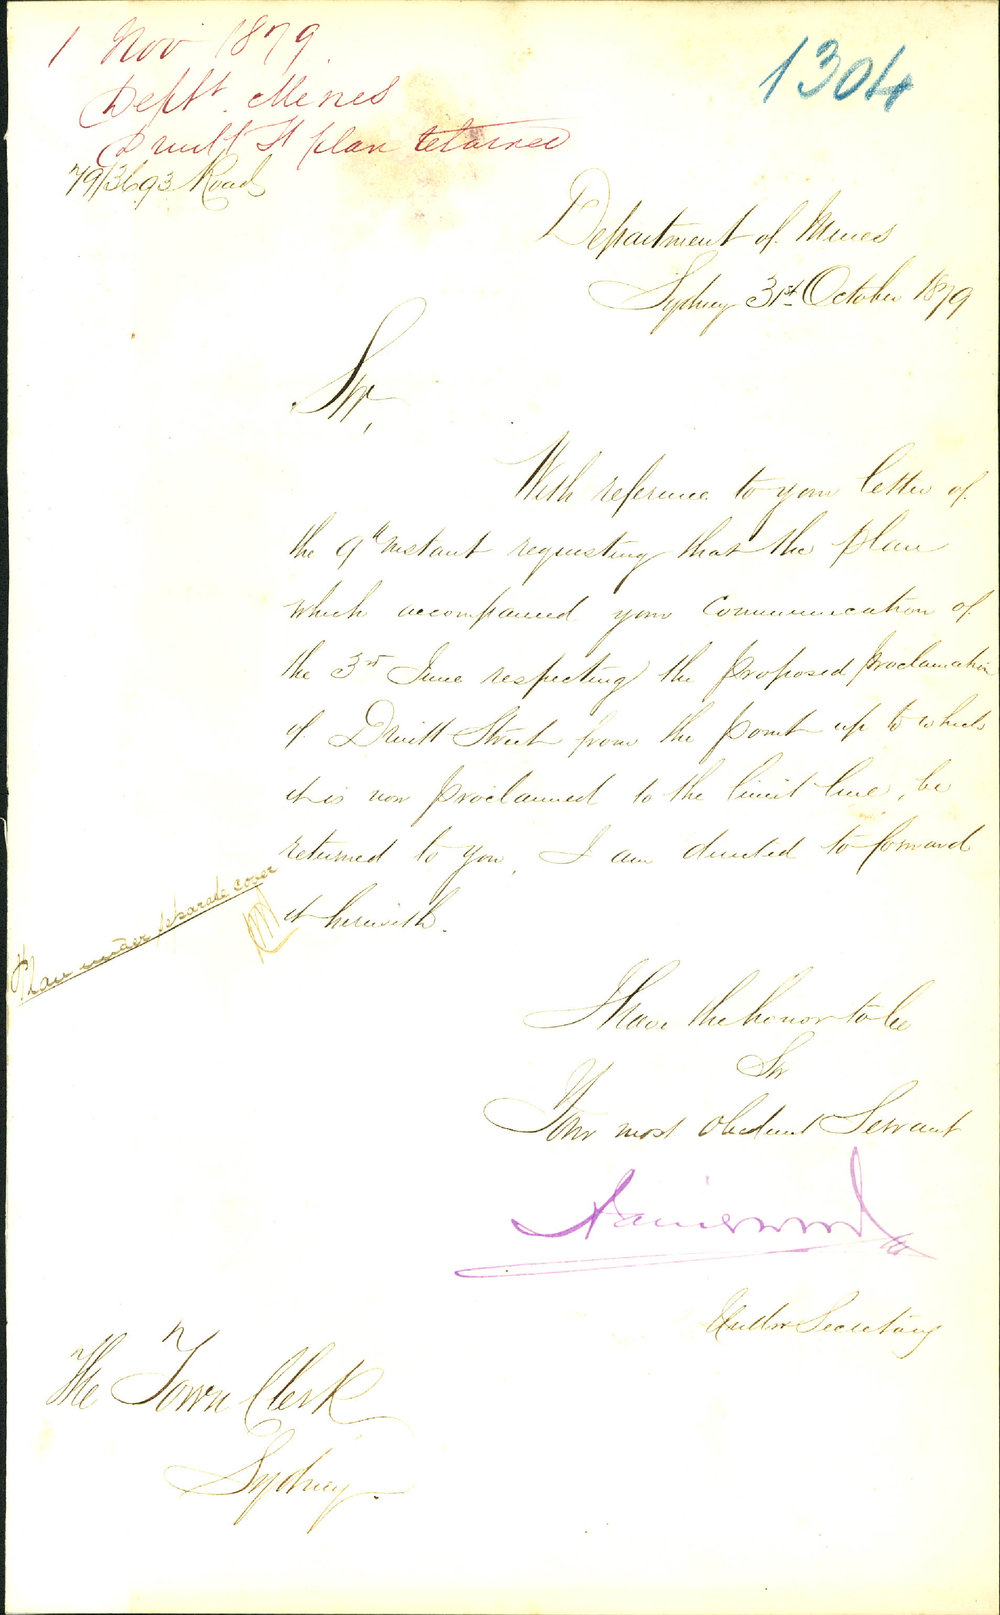 1 Nov 1879
Deptt. Mines
Druitt St plan returned
79/3693 Roads
1304
Department of Mines
Sydney 31st October 1879
Sir,
With reference to your letter of
the 9th instant requesting that the plan
which accompanied your communication of
the 3rd June respecting the proposed proclamation
of Druitt Street from the point up to which
it is now proclaimed to the limit line, be
returned to you, I am directed to forward
it herewith.
Plan under separate cover
I have the honor to be
Sir
Your most obedient Servant
Under Secretary
The Town Clerk
Sydney.